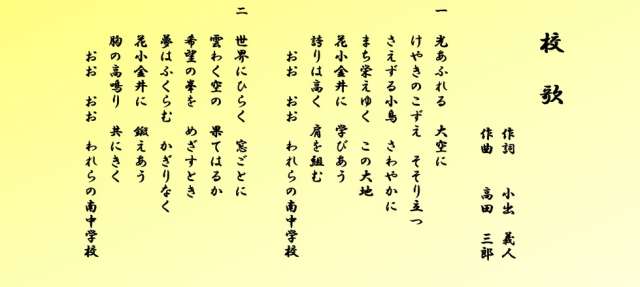 校歌
作詞　小出　義人
作曲　高田　三郎
一　光あふれる　大空に
けやきのこずえ　そそり立つ
さえずる小鳥　さわやかに
まち栄えゆく　この大地
花小金井に　学びあう
誇りは高く　肩を組む
おお　おお　われらの南中学校
二　世界にひらく　窓ごとに
雲わく空の　果てはるか
希望の峯を　めざすとき
夢はふくらむ　かぎりなく
花小金井に　鍛えあう
胸の高鳴り　共にきく
おお　おお　われらの南中学校